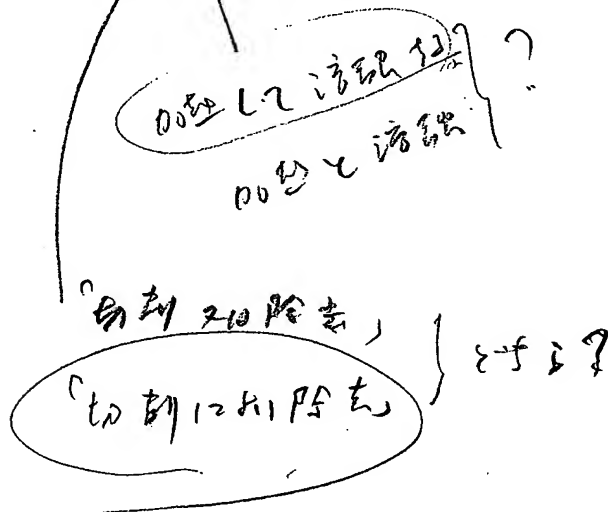 加熱して溶融 ?
加熱と溶融
「切削又は除去」
「切削により除去」 とする?